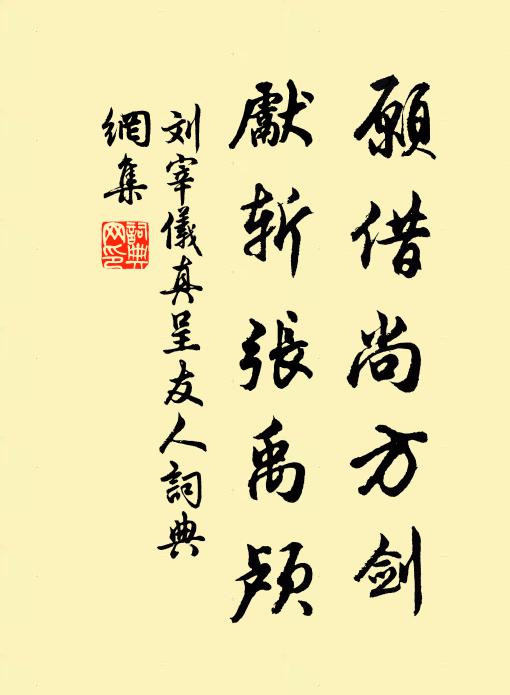 願借尚方剑
獻斬張禹颅
刘宰儀真呈友人詞典
網集
詞典
网印